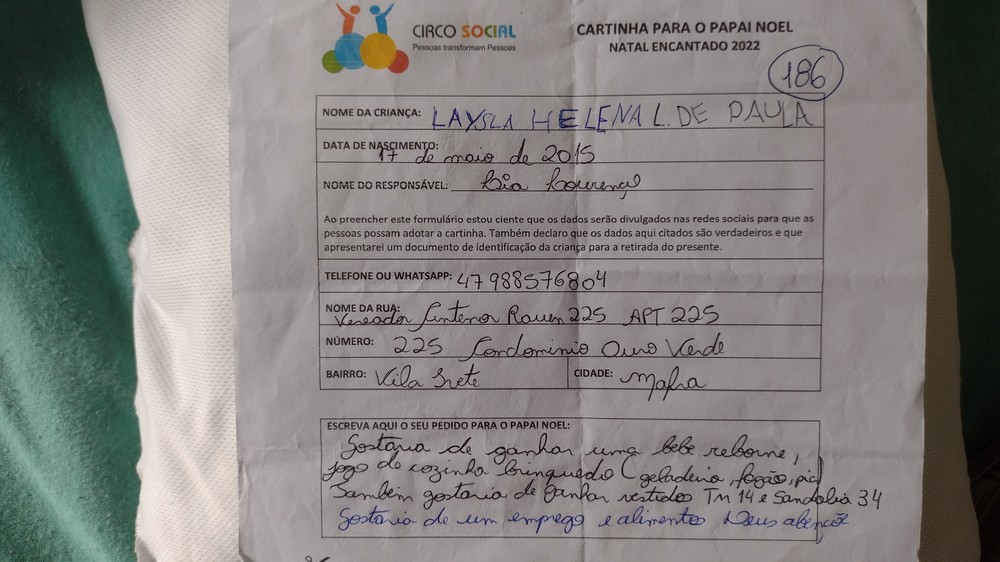 CIRCO SOCIAL
Pessoas transformam Pessoas
CARTINHA PARA O PAPAI NOEL
NATAL ENCANTADO 2022
186
NOME DA CRIANÇA: LAYSLA HELENA L. DE PAULA
DATA DE NASCIMENTO: 17 de maio de 2015
NOME DO RESPONSÁVEL: Lia Lourenço
Ao preencher este formulário estou ciente que os dados serão divulgados nas redes sociais para que as
pessoas possam adotar a cartinha. Também declaro que os dados aqui citados são verdadeiros e que
apresentarei um documento de identificação da criança para a retirada do presente.
TELEFONE OU WHATSAPP: 47 988576804
NOME DA RUA: Vereador Antenor Rauen 225 APT 225
NÚMERO: 225 Condominio Ouro Verde
BAIRRO: Vila Ivete CIDADE: Mafra
ESCREVA AQUI O SEU PEDIDO PARA O PAPAI NOEL:
Gostaria de ganhar uma bebe reborne,
jogo de cozinha brinquedo (geladeira, fogão, pia)
Também gostaria de ganhar vestidos Tm 14 e Sandalia 34
Gostaria de um emprego e alimentos Deus abençoe